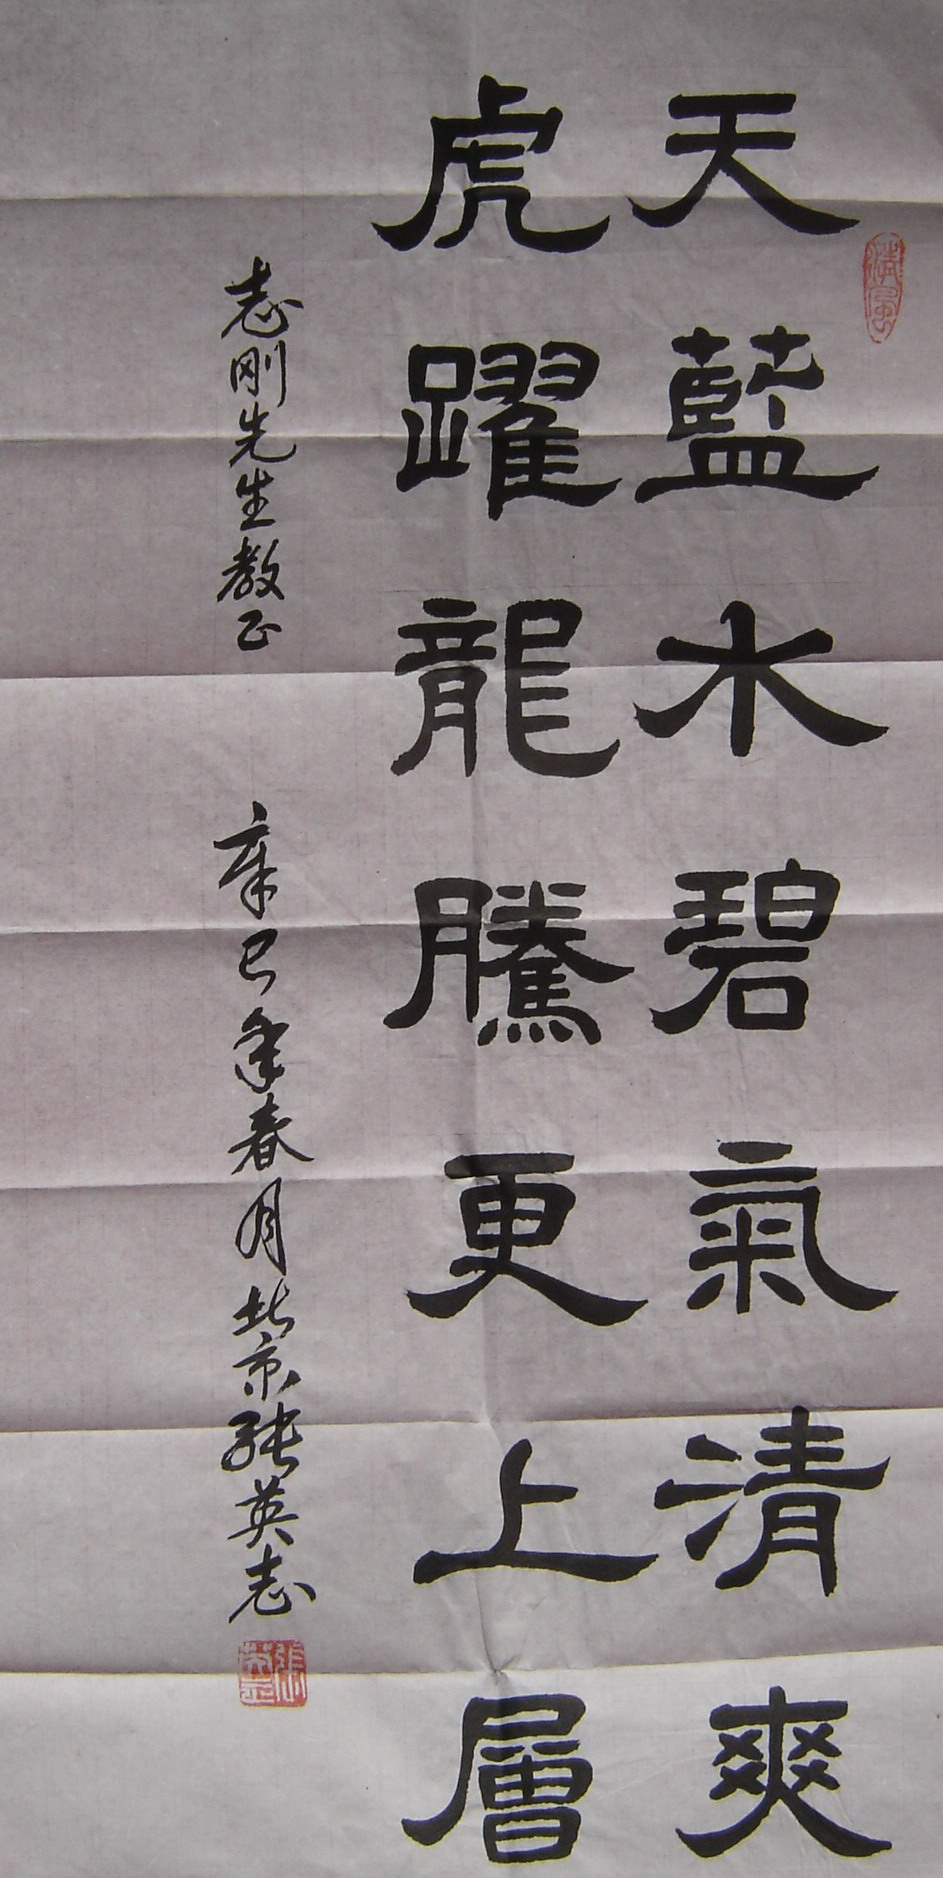 天藍水碧氣清爽
虎躍龍騰更上層
志刚先生教正
辛巳年春月北京張英志